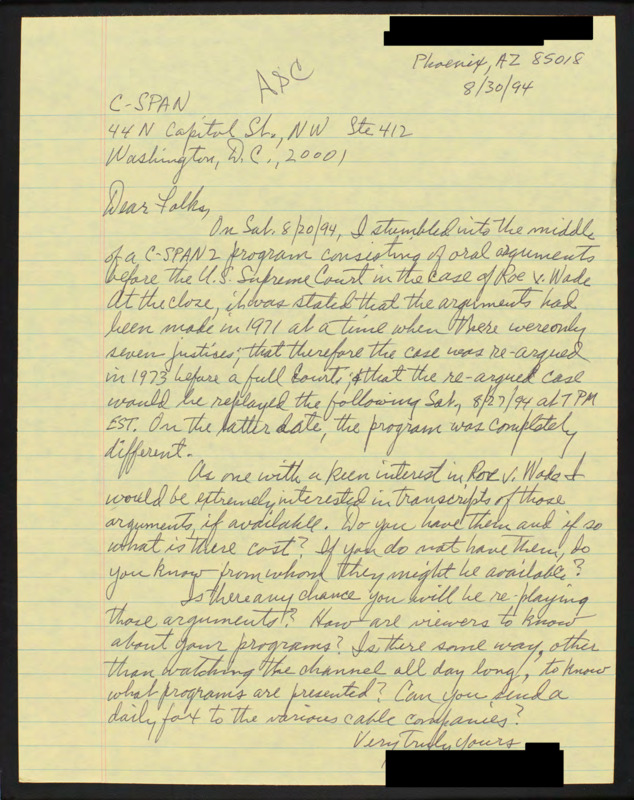 Phoenix, AZ 85018
8/30/94
ASC
C-SPAN
44 N Capitol St., NW Ste 412
Washington, D.C., 20001
Dear Folks,
On Sat. 8/20/94, I stumbled into the middle
of a C-SPAN 2 program consisting of oral arguments
before the U.S. Supreme Court in the case of Roe v. Wade
At the close, it was stated that the arguments had
been made in 1971 at a time when there were only
seven justices; that therefore the case was re-argued
in 1973 before a full Court; & that the re-argued case
would be replayed the following Sat, 8/27/94 at 7 PM
EST. On the latter date, the program was completely
different.
As one with a keen interest in Roe v. Wade I
would be extremely interested in transcripts of those
arguments, if available. Do you have them and if so
what is there cost? If you do not have them, do
you know from whom they might be available?
Is there any chance you will be re-playing
those arguments? How are viewers to know
about your programs? Is there some way, other
than watching the channel all day long, to know
what programs are presented? Can you send a
daily fax to the various cable companies?
Very Truly Yours